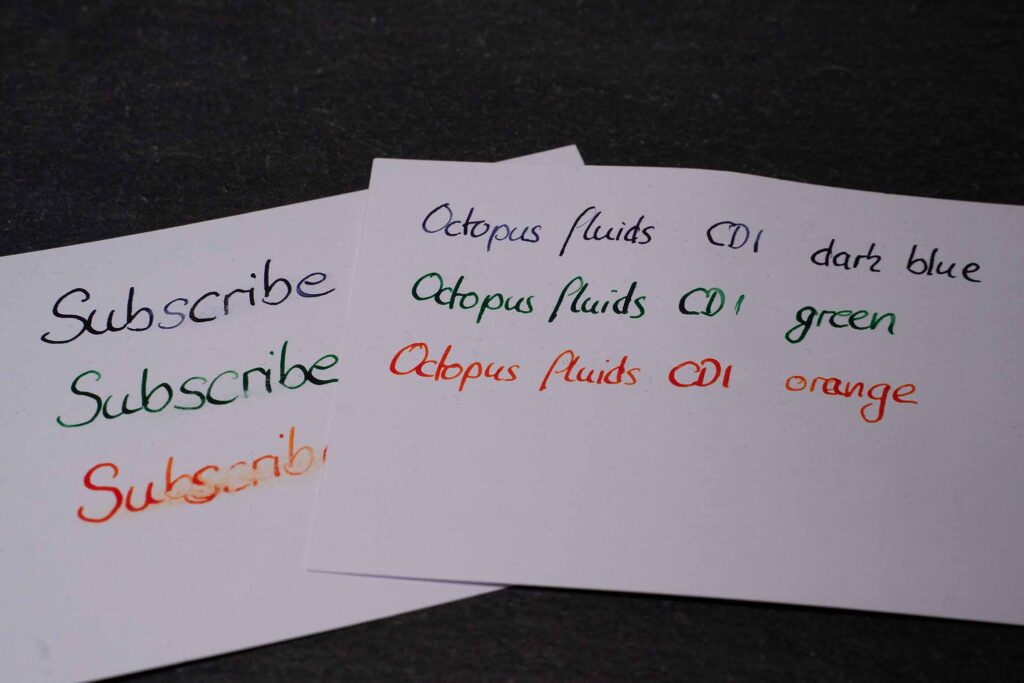 Subscribe
Subscribe
Subscribe
Octopus fluids CD1 dark blue
Octopus fluids CD1 green
Octopus fluids CD1 orange